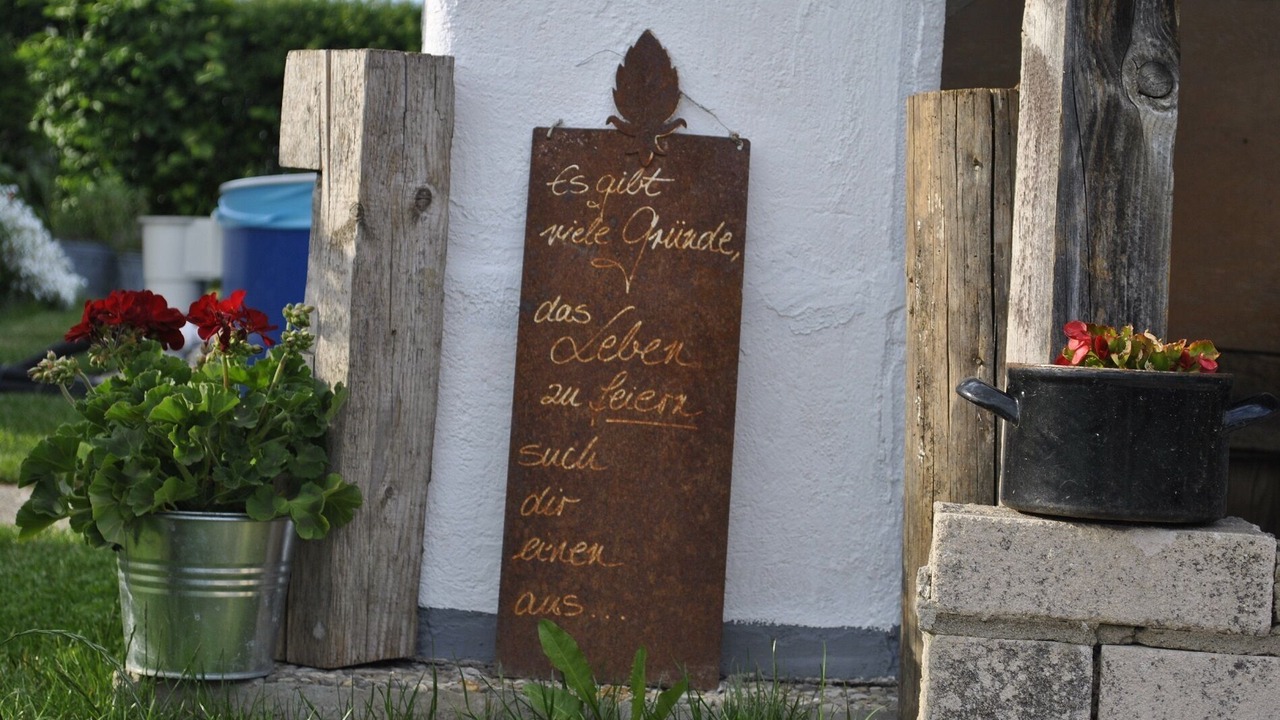 Es gibt
viele Gründe,
das
Leben
zu feiern
such
dir
einen
aus...